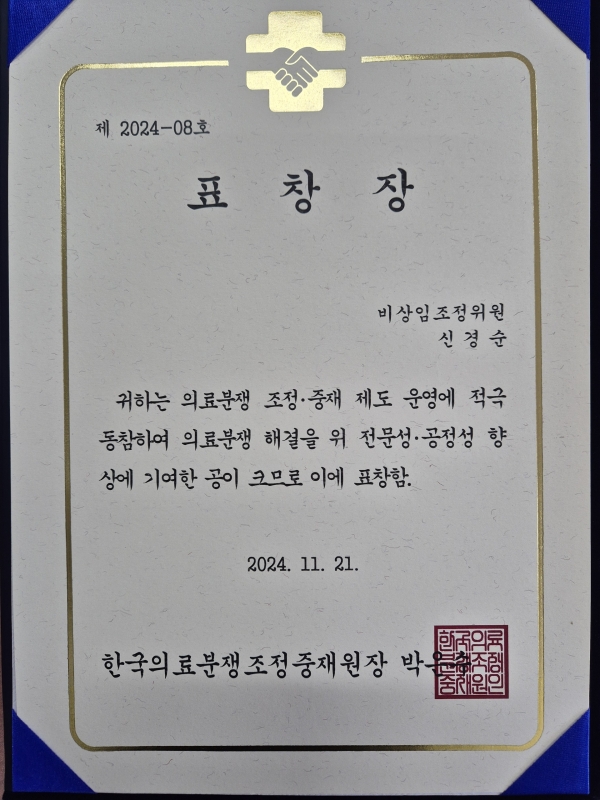 제 2024-08호
표 창 장
비상임조정위원
신 경 순
귀하는 의료분쟁 조정·중재 제도 운영에 적극
동참하여 의료분쟁 해결을 위 전문성·공정성 향
상에 기여한 공이 크므로 이에 표창함.
2024. 11. 21.
한국의료분쟁조정중재원장 박은수